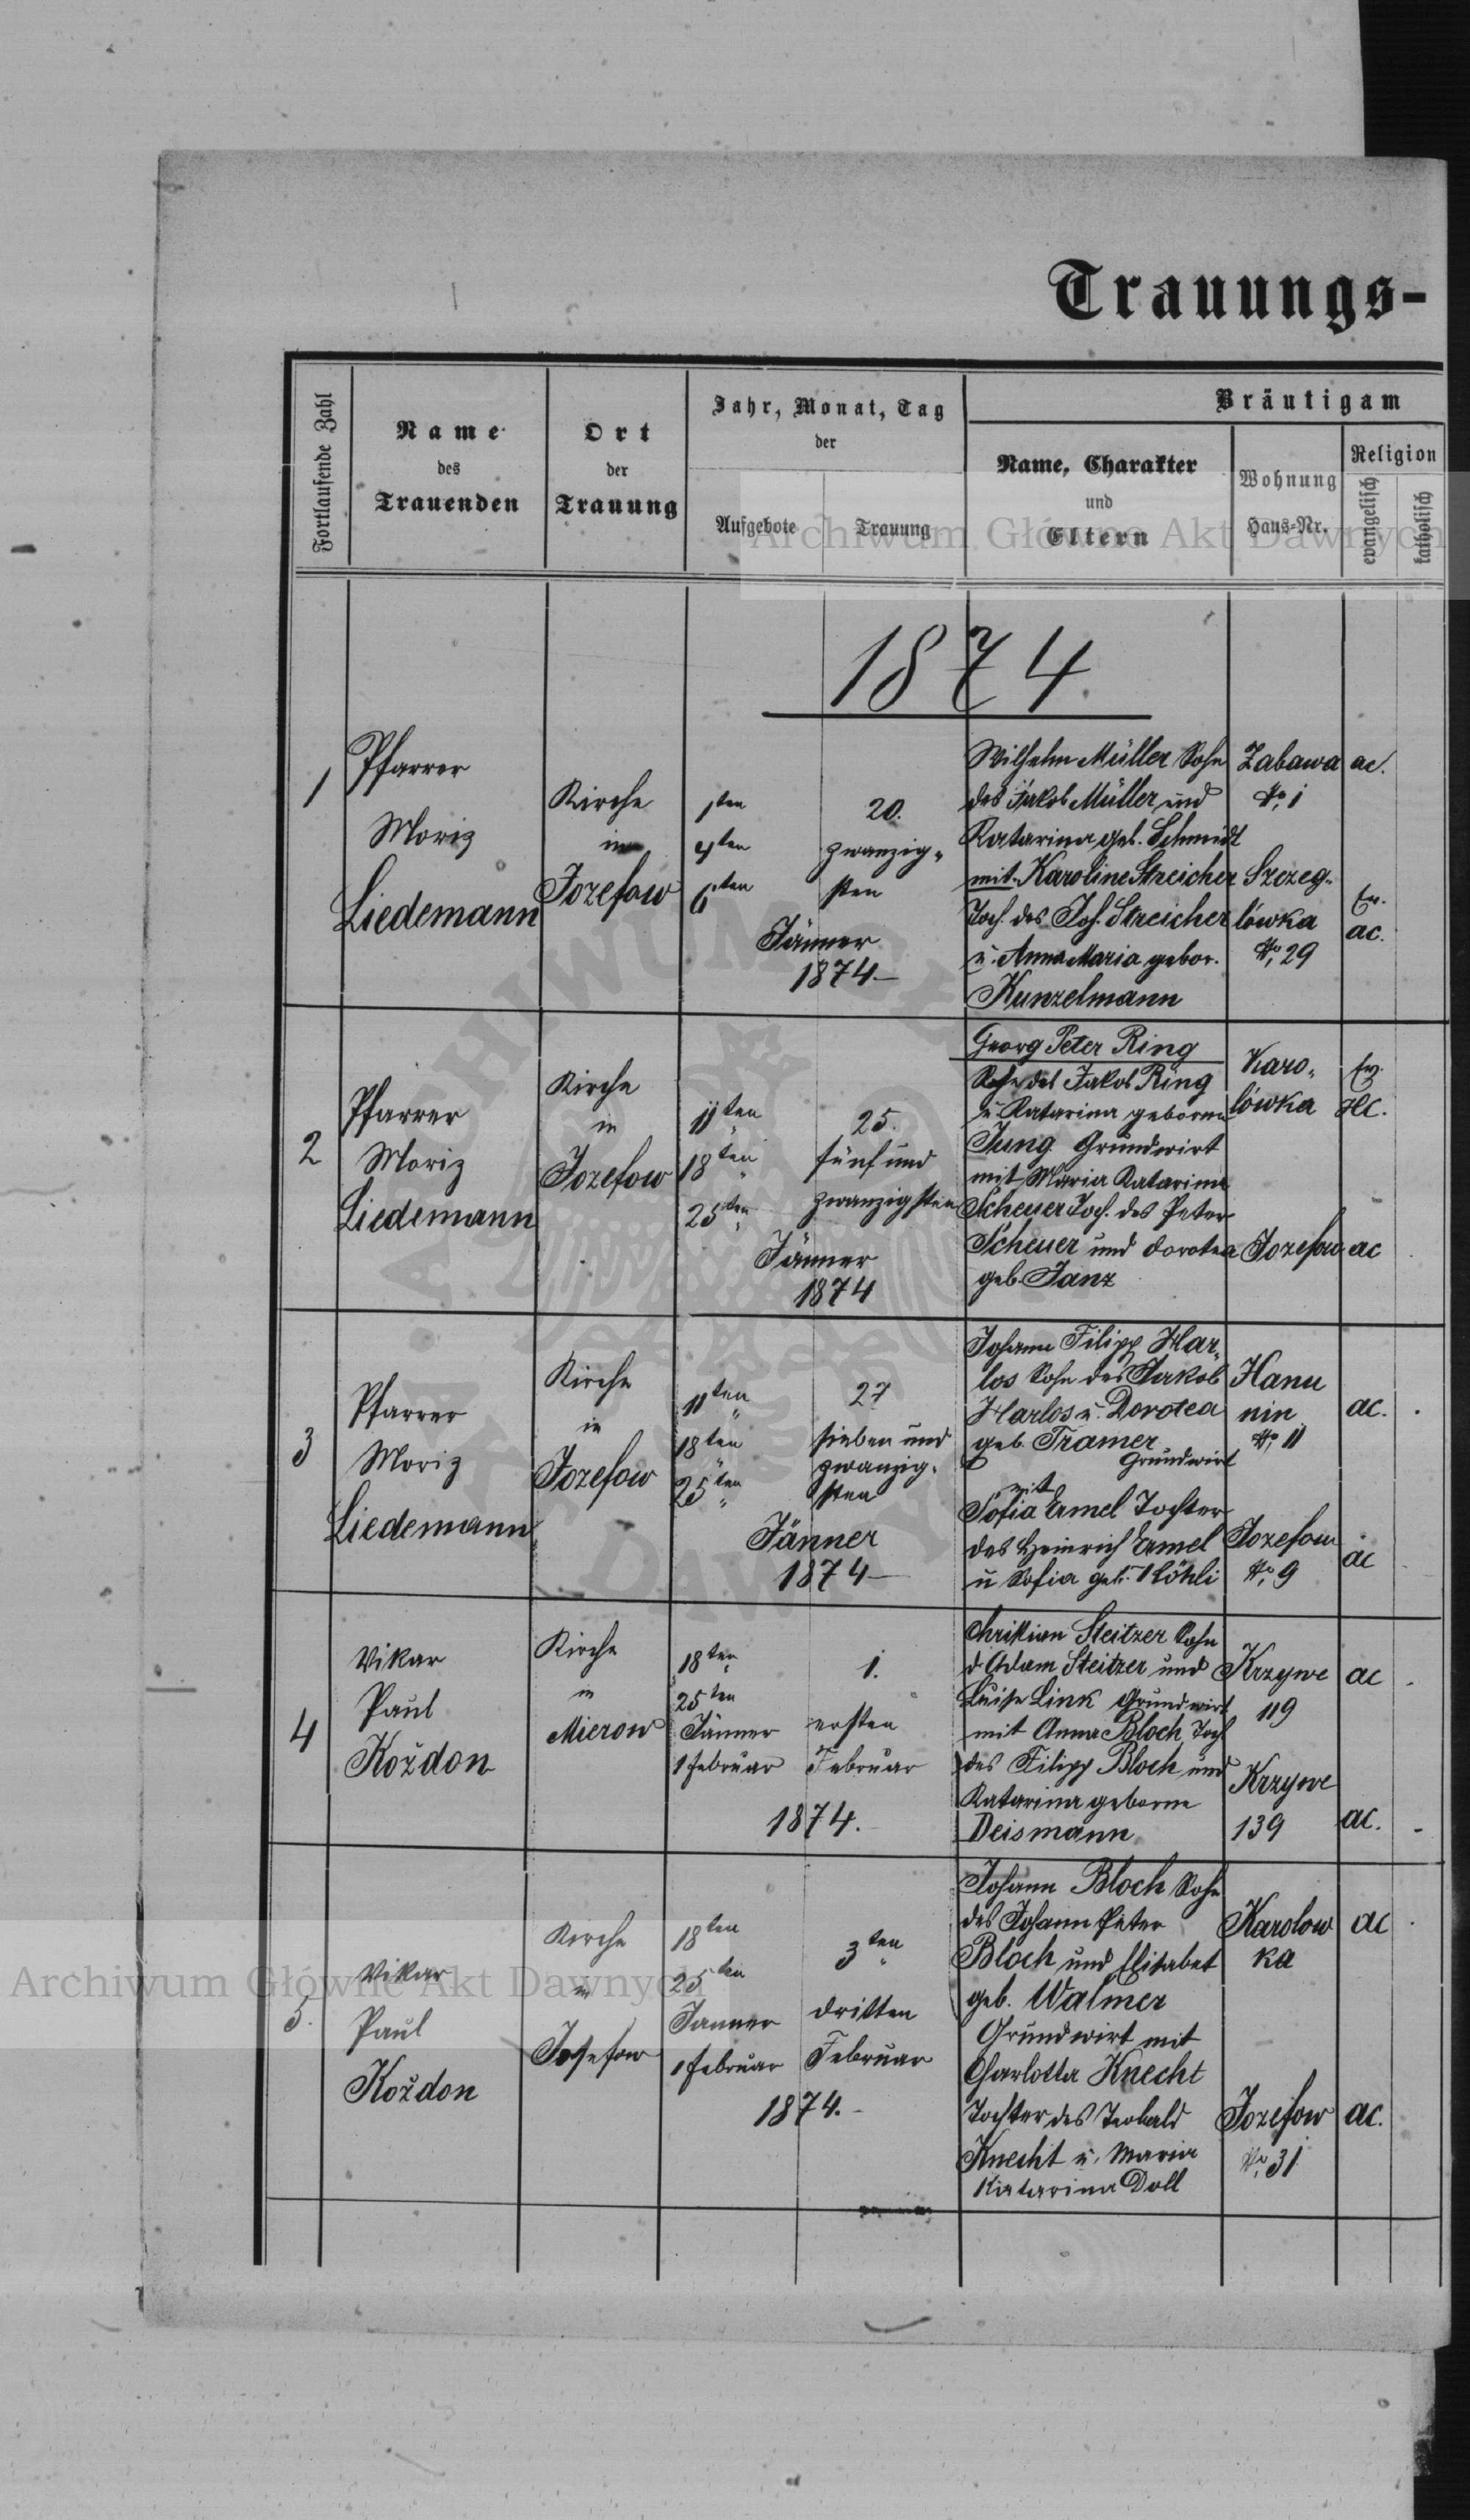 Trauungs-
Fortlaufende Zahl
Name
des
Trauenden
Ort
der
Trauung
Jahr, Monat, Tag
der
Aufgebote
Trauung
Bräutigam
Name, Charakter
und
Eltern
Wohnung
Haus-Nr.
Religion
evangelisch
katholisch
Archiwum Główne Akt Dawnych
1874.
1
Pfarrer
Moriz
Liedemann
Kirche
in
Jozefow
1ten
4ten
6ten
20.
zwanzig-
sten
Jänner
1874.—
Wilhelm Müller Sohn
des Jakob Müller und
Katarina geb. Schmidt
mit Karoline Streicher
Toch. des Joh. Streicher
u. Anna Maria gebor.
Kunzelmann
Zabawa
No 1
Szczeg-
lówka
No 29
ac.
Ev.
ac.
2
Pfarrer
Moriz
Liedemann
Kirche
in
Jozefow
11ten
18ten
25ten
25.
fünf und
zwanzigsten
Jänner
1874
Georg Peter Ring
Sohn des Jakob Ring
u. Katarina geborne
Jung Grundwirt
mit Maria Katarina
Scheuer Toch. des Peter
Scheuer und Dorotea
geb. Janz
Karo-
lówka
Jozefow
Ev.
HC.
ac
3
Pfarrer
Moriz
Liedemann
Kirche
in
Jozefow
11ten
18ten
25ten
27
sieben und
zwanzig-
sten
Jänner
1874—
Johann Filipp Har-
los Sohn des Jakob
Harlos u. Dorotea
geb. Tramer
Grundwirt
mit
Sofia Ermel Tochter
des Heinrich Ermel
u Sofia geb.
Hanu
nin
No 11
Jozefow
No 9
ac.
ac
4
Vikar
Paul
Koždon
Kirche
in
Mierow
18ten
25ten
Jänner
1 Februar
1.
ersten
Februar
1874.
Christian Steitzer Sohn
d Adam Steitzer und
Luise Link Grundwirt
mit Anna Bloch Toch
des Filipp Bloch und
Katarina geborne
Deismann
Krzywe
119
Krzywe
139
ac
ac.
5.
Vikar
Paul
Koždon
Kirche
in
Josefow
18ten
25ten
Janner
1 Februar
3ten
dritten
Februar
1874.-
Johann Bloch Sohn
des Johann Peter
Bloch und Elisabet
geb. Walmer
Grundwirt mit
Charlotta Knecht
Tochter des Teobald
Knecht u. Maria
Katarina Doll
Karolow
ka
Jozefow
No 31
ac
ac.
Archiwum Główne Akt Dawnych